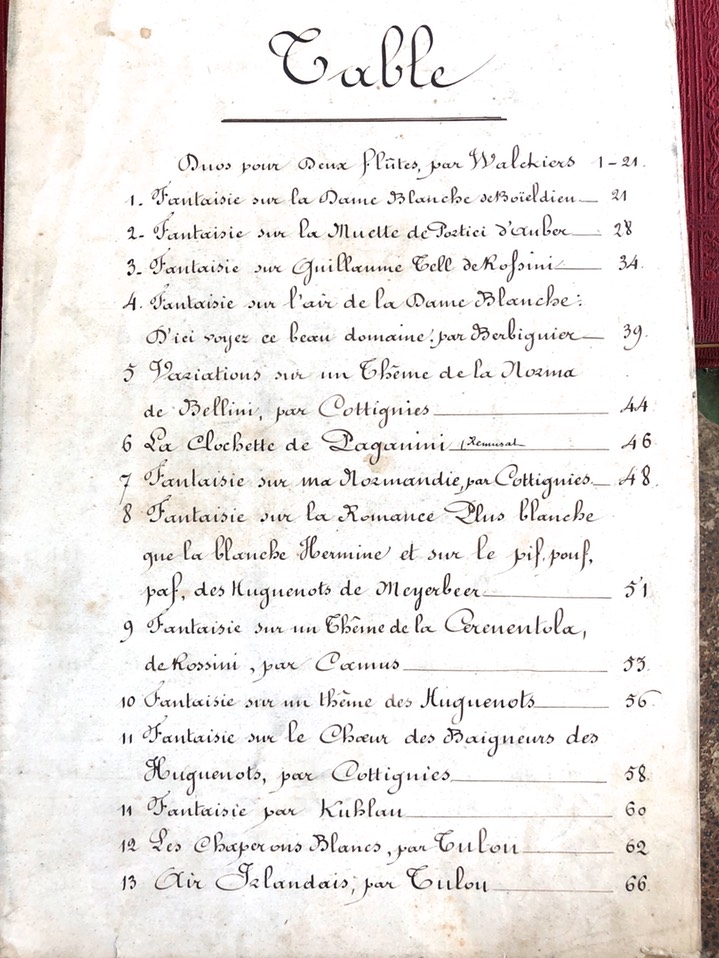 Table
Duos pour Deux flûtes, par Walckiers 1-21.
1. Fantaisie sur la Dame Blanche de Boïeldieu 21
2. Fantaisie sur la Muette de Portici d'Auber 28
3. Fantaisie sur Guillaume Tell de Rossini 34.
4. Fantaisie sur l'air de la Dame Blanche:
D'ici voyez ce beau domaine, par Berbiguier 39.
5 Variations sur un Thême de la Norma
de Bellini, par Cottignies 44
6 La Clochette de Paganini (Remusat 46
7 Fantaisie sur ma Normandie, par Cottignies 48.
8 Fantaisie sur la Romance Plus blanche
que la blanche Hermine et sur le pif, pouf,
paf, des Huguenots de Meyerbeer 51
9 Fantaisie sur un Thême de la Cerenentola,
de Rossini, par Camus 53.
10 Fantaisie sur un thême des Huguenots 56
11 Fantaisie sur le Chœur des Baigneurs des
Huguenots, par Cottignies 58.
11 Fantaisie par Kuhlau 60
12 Les Chaperons Blancs, par Tulou 62
13 Air Irlandais, par Tulou 66.